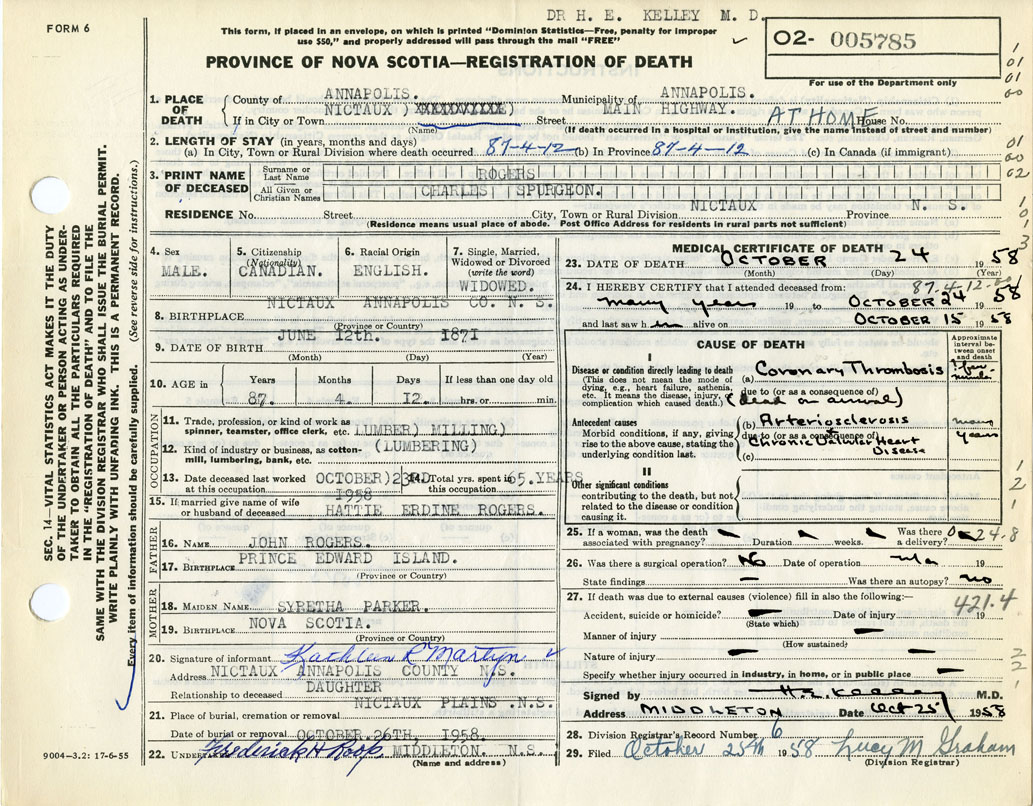 DR H. E. KELLEY M. D.
FORM 6
This form, if placed in an envelope, on which is printed "Dominion Statistics—Free, penalty for improper
use $50," and properly addressed will pass through the mail "FREE"
O2- 005785
For use of the Department only
PROVINCE OF NOVA SCOTIA—REGISTRATION OF DEATH
1. PLACE OF DEATH
County of ANNAPOLIS. Municipality of ANNAPOLIS.
If in City or Town NICTAUX ) Street MAIN HIGHWAY. AT HOME House No.
(Name) (If death occurred in a hospital or institution, give the name instead of street and number)
2. LENGTH OF STAY (in years, months and days)
(a) In City, Town or Rural Division where death occurred 87-4-12 (b) In Province 87-4-12 (c) In Canada (if immigrant)
3. PRINT NAME OF DECEASED
Surname or Last Name ROGERS
All Given or Christian Names CHARLES SPURGEON.
RESIDENCE No. Street City, Town or Rural Division NICTAUX Province N. S.
(Residence means usual place of abode. Post Office Address for residents in rural parts not sufficient)
SEC. 14—VITAL STATISTICS ACT MAKES IT THE DUTY
OF THE UNDERTAKER OR PERSON ACTING AS UNDER-
TAKER TO OBTAIN ALL THE PARTICULARS REQUIRED
IN THE "REGISTRATION OF DEATH" AND TO FILE THE
SAME WITH THE DIVISION REGISTRAR WHO SHALL ISSUE THE BURIAL PERMIT.
WRITE PLAINLY WITH UNFADING INK. THIS IS A PERMANENT RECORD.
Every item of information should be carefully supplied. (See reverse side for instructions.)
4. Sex MALE.
5. Citizenship (Nationality) CANADIAN.
6. Racial Origin ENGLISH.
7. Single, Married, Widowed or Divorced (write the word) WIDOWED.
8. BIRTHPLACE NICTAUX ANNAPOLIS CO. N. S.
(Province or Country)
9. DATE OF BIRTH JUNE 12th. 1871
(Month) (Day) (Year)
10. AGE in Years Months Days If less than one day old
87. 4. 12. hrs. or min.
OCCUPATION
11. Trade, profession, or kind of work as
spinner, teamster, office clerk, etc. LUMBER) MILLING)
12. Kind of industry or business, as cotton-
mill, lumbering, bank, etc. (LUMBERING)
13. Date deceased last worked at this occupation OCTOBER)23RD 1958
14. Total yrs. spent in this occupation 65.YEARS
15. If married give name of wife
or husband of deceased HATTIE ERDINE ROGERS.
FATHER
16. NAME JOHN ROGERS.
17. BIRTHPLACE PRINCE EDWARD ISLAND.
(Province or Country)
MOTHER
18. MAIDEN NAME SYRETHA PARKER.
19. BIRTHPLACE NOVA SCOTIA.
(Province or Country)
20. Signature of informant Kathleen R Martyn
Address NICTAUX ANNAPOLIS COUNTY N.S.
Relationship to deceased DAUGHTER
21. Place of burial, cremation or removal NICTAUX PLAINS .N.S.
Date of burial or removal OCTOBER.26TH. 1958.
22. UNDERTAKER Frederick H Roop MIDDLETON. N.S.
(Name and address)
9004—3.2: 17-6-55
MEDICAL CERTIFICATE OF DEATH
23. DATE OF DEATH OCTOBER 24 1958
(Month) (Day) (Year)
87.4-12
24. I HEREBY CERTIFY that I attended deceased from:
many years 19 to OCTOBER 24 1958
and last saw him alive on OCTOBER 15 1958
CAUSE OF DEATH
Approximate interval between onset and death
I
Disease or condition directly leading to death
(This does not mean the mode of dying, e.g., heart failure, asthenia, etc. It means the disease, injury, or complication which caused death.)
(a) Coronary Thrombosis
due to (or as a consequence of)
(dead on arrival)
Antecedent causes
Morbid conditions, if any, giving rise to the above cause, stating the underlying condition last.
(b) Arteriosclerosis many years
due to (or as a consequence of)
Chronic Valvular Heart Disease
(c)
II
Other significant conditions
contributing to the death, but not related to the disease or condition causing it.
25. If a woman, was the death associated with pregnancy? Duration weeks. Was there a delivery?
26. Was there a surgical operation? No Date of operation 19
State findings Was there an autopsy? no
27. If death was due to external causes (violence) fill in also the following:—
421.4
Accident, suicide or homicide? Date of injury 19
(State which)
Manner of injury
(How sustained)
Nature of injury
Specify whether injury occurred in industry, in home, or in public place
Signed by H.E. Kelley M.D.
Address MIDDLETON Date Oct 25 1958
28. Division Registrar's Record Number 6
29. Filed October 25th 1958 Lucy M Graham
(Division Registrar)